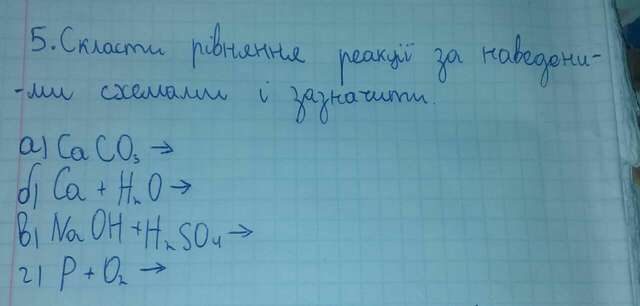 5. Скласти рівняння реакції за наведени-
-ми схемами і зазначити.
а) CaCO₃ →
б) Ca + H₂O →
в) NaOH + H₂SO₄ →
г) P + O₂ →